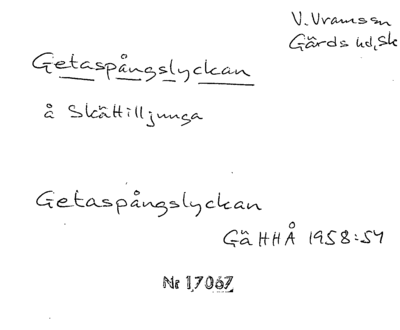 V. Vramssn
Gärds hd, Sk
Getaspångslyckan
å Skättilljunga
Getaspångslyckan
GäHHÅ 1958:54
Nr 17067